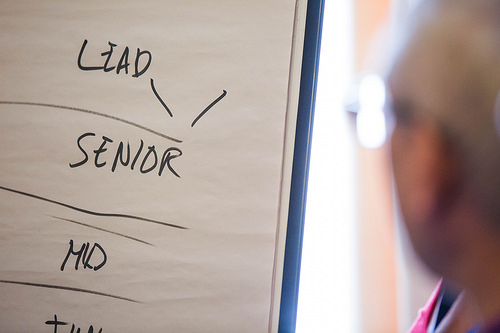 LEAD
SENIOR
MID